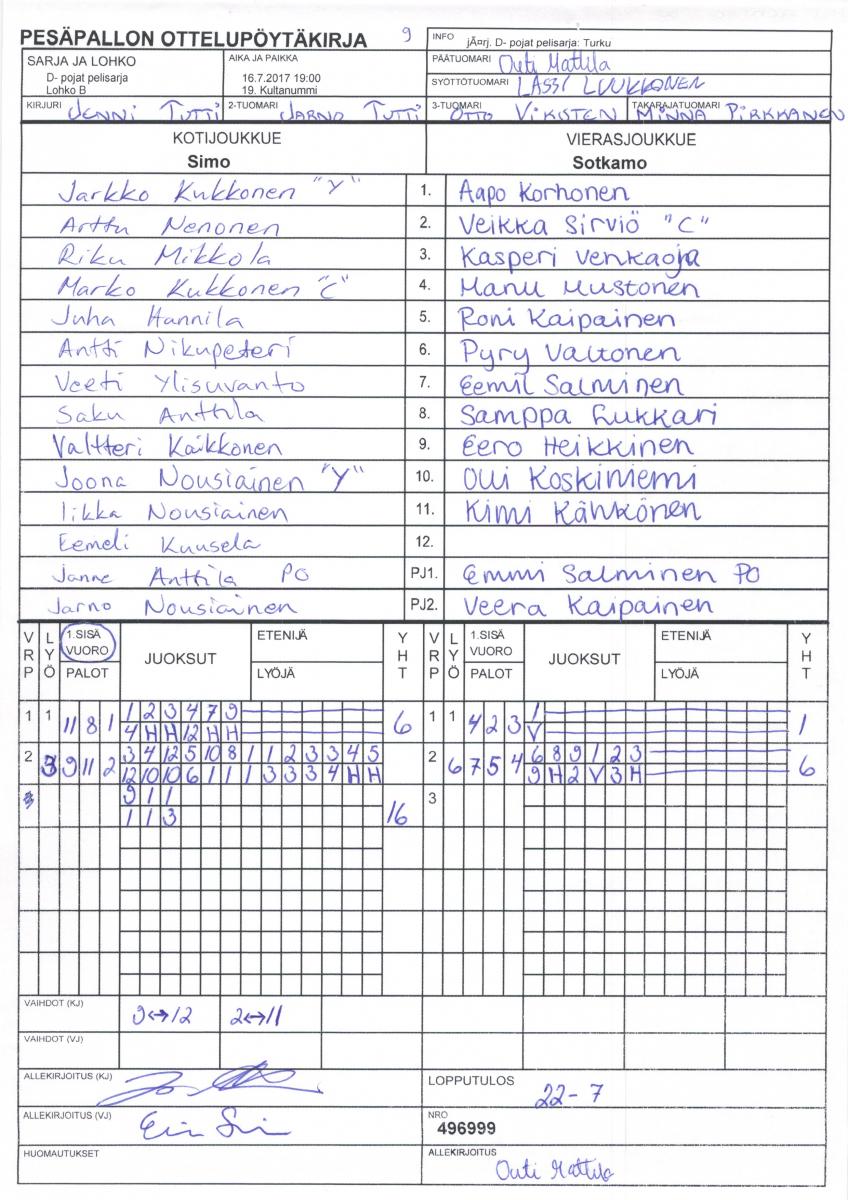 PESÄPALLON OTTELUPÖYTÄKIRJA 9
INFO jĤrj. D- pojat pelisarja: Turku
SARJA JA LOHKO
D- pojat pelisarja
Lohko B
AIKA JA PAIKKA
16.7.2017 19:00
19. Kultanummi
PÄÄTUOMARI Outi Mattila
SYÖTTÖTUOMARI LASSI LUUKKONEN
KIRJURI JENNI TUTTI 2-TUOMARI JARNO TUTTI 3-TUOMARI OTTO VIKSTEN TAKARAJATUOMARI MINNA PIRKKANEN
KOTIJOUKKUE VIERASJOUKKUE
Simo Sotkamo
Jarkko Kukkonen "Y" 1. Aapo Korhonen
Arttu Nenonen 2. Veikka Sirviö "C"
Riku Mikkola 3. Kasperi Venkaoja
Marko Kukkonen "C" 4. Manu Mustonen
Juha Hannila 5. Roni Kaipainen
Antti Nikupeteri 6. Pyry Valtonen
Veeti Ylisuvanto 7. Eemil Salminen
Saku Anttila 8. Samppa Lukkari
Valtteri Kaikkonen 9. Eero Heikkinen
Joona Nousiainen "Y" 10. Olli Koskiniemi
Iikka Nousiainen 11. Kimi Kähkönen
Eemeli Kuusela 12.
Janne Anttila PO PJ1. Emmi Salminen PO
Jarno Nousiainen PJ2. Veera Kaipainen
VRP LYÖ 1.SISÄ VUORO PALOT JUOKSUT ETENIJÄ LYÖJÄ YHT VRP LYÖ 1.SISÄ VUORO PALOT JUOKSUT ETENIJÄ LYÖJÄ YHT
1 1 11 8 1 1 2 3 4 7 9 6 1 1 4 2 3 1 1
4 H H 12 H H V
2 3 9 11 2 3 4 12 5 10 8 1 1 2 3 3 4 5 2 6 7 5 4 6 8 9 1 2 3 6
12 10 10 6 1 1 1 3 3 3 4 H H 9 H 2 V 3 H
9 1 1 16 3
1 1 3
VAIHDOT (KJ) 9↔12 2↔11
VAIHDOT (VJ)
ALLEKIRJOITUS (KJ)
LOPPUTULOS 22-7
ALLEKIRJOITUS (VJ)
NRO
496999
HUOMAUTUKSET
ALLEKIRJOITUS Outi Mattila